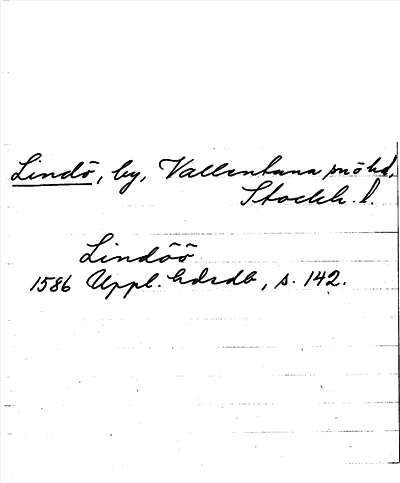 Lindö, by, Vallentuna sn o hd,
Stockh. l.
Lindöö
1586 Uppl. hdrdb, s. 142.